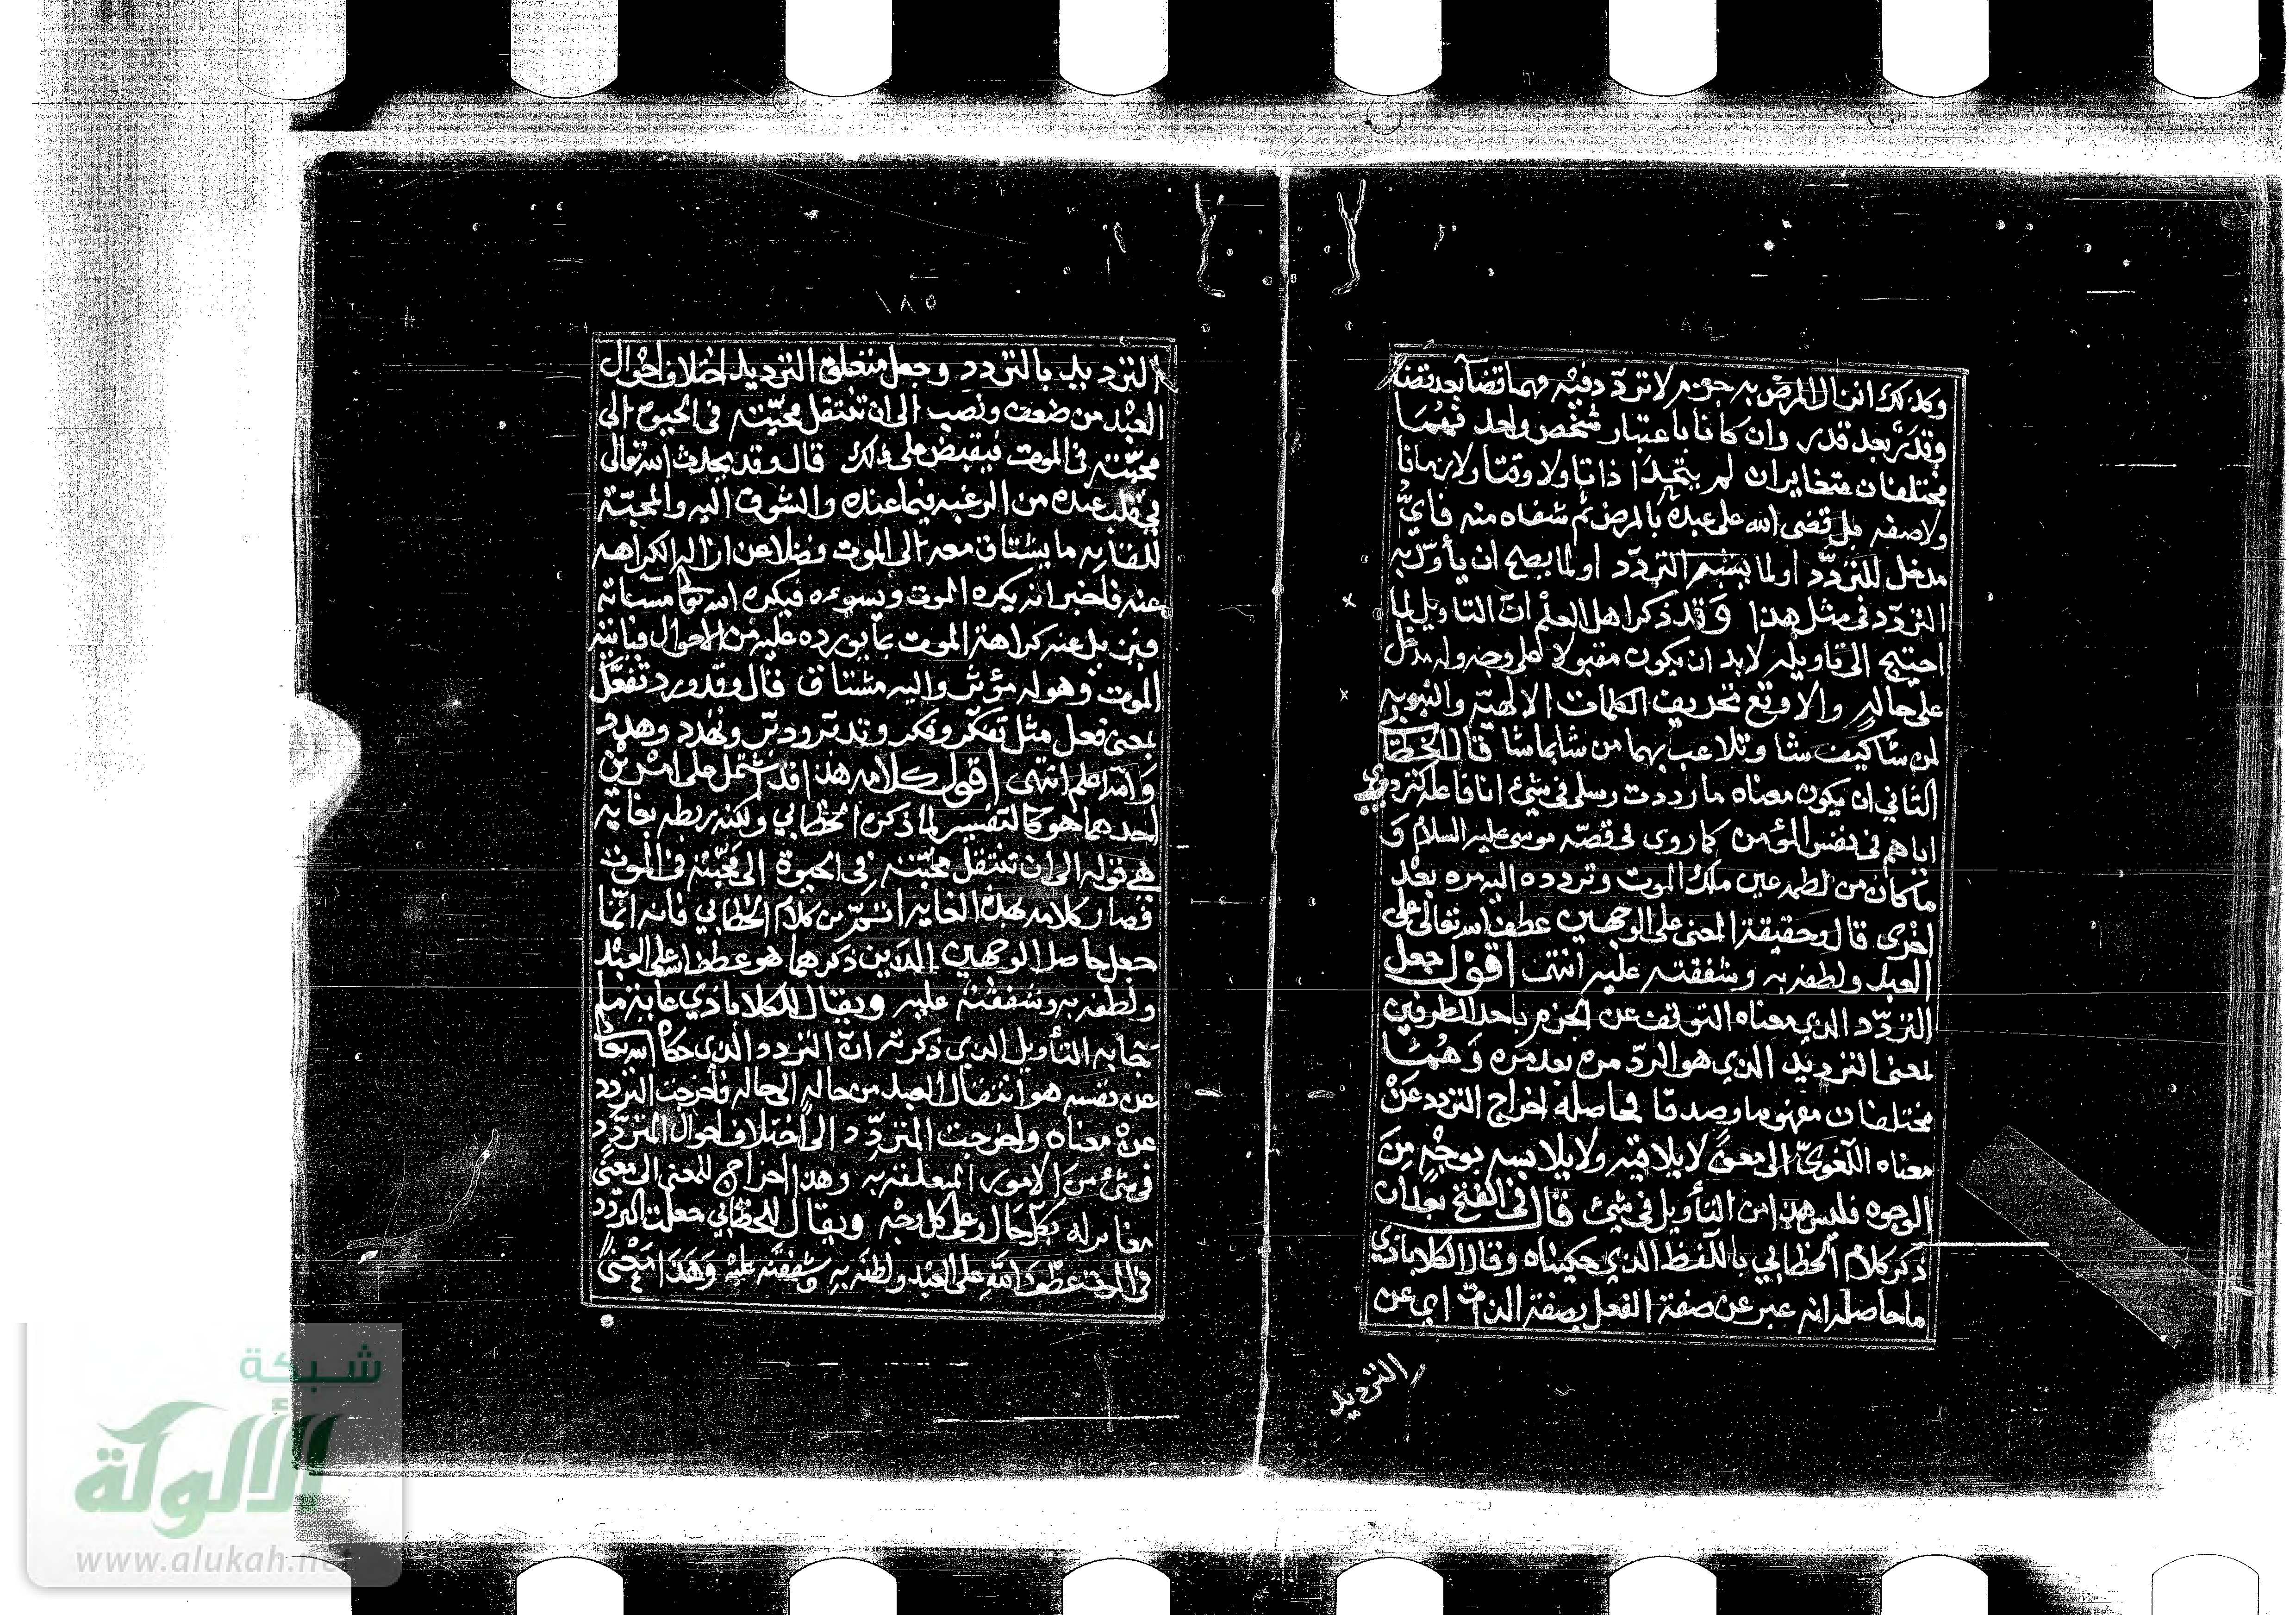 وكذلك انزال المرض به جزم لا تردّد فيه فهما قضآ بعد قضا
وقدَرٌ بعد قدر وان كانا باعتبار شخص واحد فهُمَا
مختلفان متغايران لم يتحدا ذاتا ولا وقتا ولا زمانا
ولا صفه بل قضى الله على عبده بالمرض ثم شفاه منه فايّ
مدخل للتردّد او لما يسم التردّد او لما يصح ان يأوّل به
التردّد في مثل هذا وَقد ذكر اهل العلم انّ التاويل لما
احتيج الى تاويله لابد ان يكون مقبولا على وجه وله مدخل
على حاله والا وقع تحريف الكلمات الالهيّة والنبويه
لمن شا كيف شا وتلاعب بهما من شا بما شا قال الخطابي
الثاني ان يكون معناه ما رددت رسلي في شئ انا فاعله كترديدي
اياهم في نفس المؤمن كما روى في قصّه موسى عليه السلام وَ
ما كان من لطمه عين ملك الموت وتردده اليه مره بعد
اخرى قال وحقيقة المعنى على الوجهين عطف الله تعالى على
العبد ولطفه به وشفقته عليه انتهى اقول جعل
التردّد الذي معناه التوقف عن الجزم باحد الطرفين
لمعنى الترديد الذي هو الردّ مره بعد مره وَهُمَا
مختلفان مفهوما وصدقا فحاصله اخراج التردد عَنْ
معناه اللّغويّ الى معنى لا يلاقيه ولا يلابسه بوجْهٍ مِنَ
الوجوه فليس هذا من التأويل في شئ قال في الفتح بعد ان
ذكر كلام الخطابي باللفظ الذي حكيناه وقال الكلاباذي
ما حاصله انه عبر عن صفة الفعل بصفة الذات اي عن
الترديد
١٨٥
الترديد بالتردد وجعل متعلق الترديد اختلاف احوال
العبْد من ضعف ونصب الى ان تنتقل محبّته في الحيوة الى
محبّته في الموت فيقبض على ذلك قال وقد يحدث الله تعالى
في قلب عبده من الرغبه فيما عنده والشوق اليه والمحبّة
للقايه ما يشتاق معه الى الموت فضلا عن ازالة الكراهه
عنه فاخبر انه يكره الموت ويسوءه فيكره الله تعالى مساءته
فيزيل عنه كراهة الموت بما يورده عليه من الاحوال فياتيه
الموت وهو له مؤثر واليه مشتاق قال وقد ورد تفعّل
بمعنى فعل مثل تفكّر وفكر وتدبّر ودبّر وتهدد وهدد
وَالله اعلم انتهى اقول كلامه هذا قد اشتمل على امْرين
احدهما هو كالتفسير لما ذكره الخطابي ولكنه ربطه بغايه
هي قوله الى ان تنتقل محبّته في الحيوة الى محبّته في الموت
فصار كلامه بهذه الغايه اتمّ من كلام الخطابي فانه انّما
جعل حاصل الوجهين الذين ذكرهما هو عطف الله على العبْد
ولطفه به وشفقته عليه ويقال للكلاباذي غاية ما
جا به التأويل الذي ذكرته انّ التردد الذي حكاه الله تعالى
عن نفسه هو انتقال العبد من حاله الى حاله فأخرجت التردد
عن معناه واخرجت المتردّد الى اختلاف احوال المتردّد
في شئ من الامور المتعلقه به وهذا اخراج للمعنى الى معنى
مغاير له بكل حال وعلى كل وجه ويقال للخطابي جعلت التردّد
الله على العبْد ولطفَه به وشفقتَه عليه وَهَذَا مَعْنىً